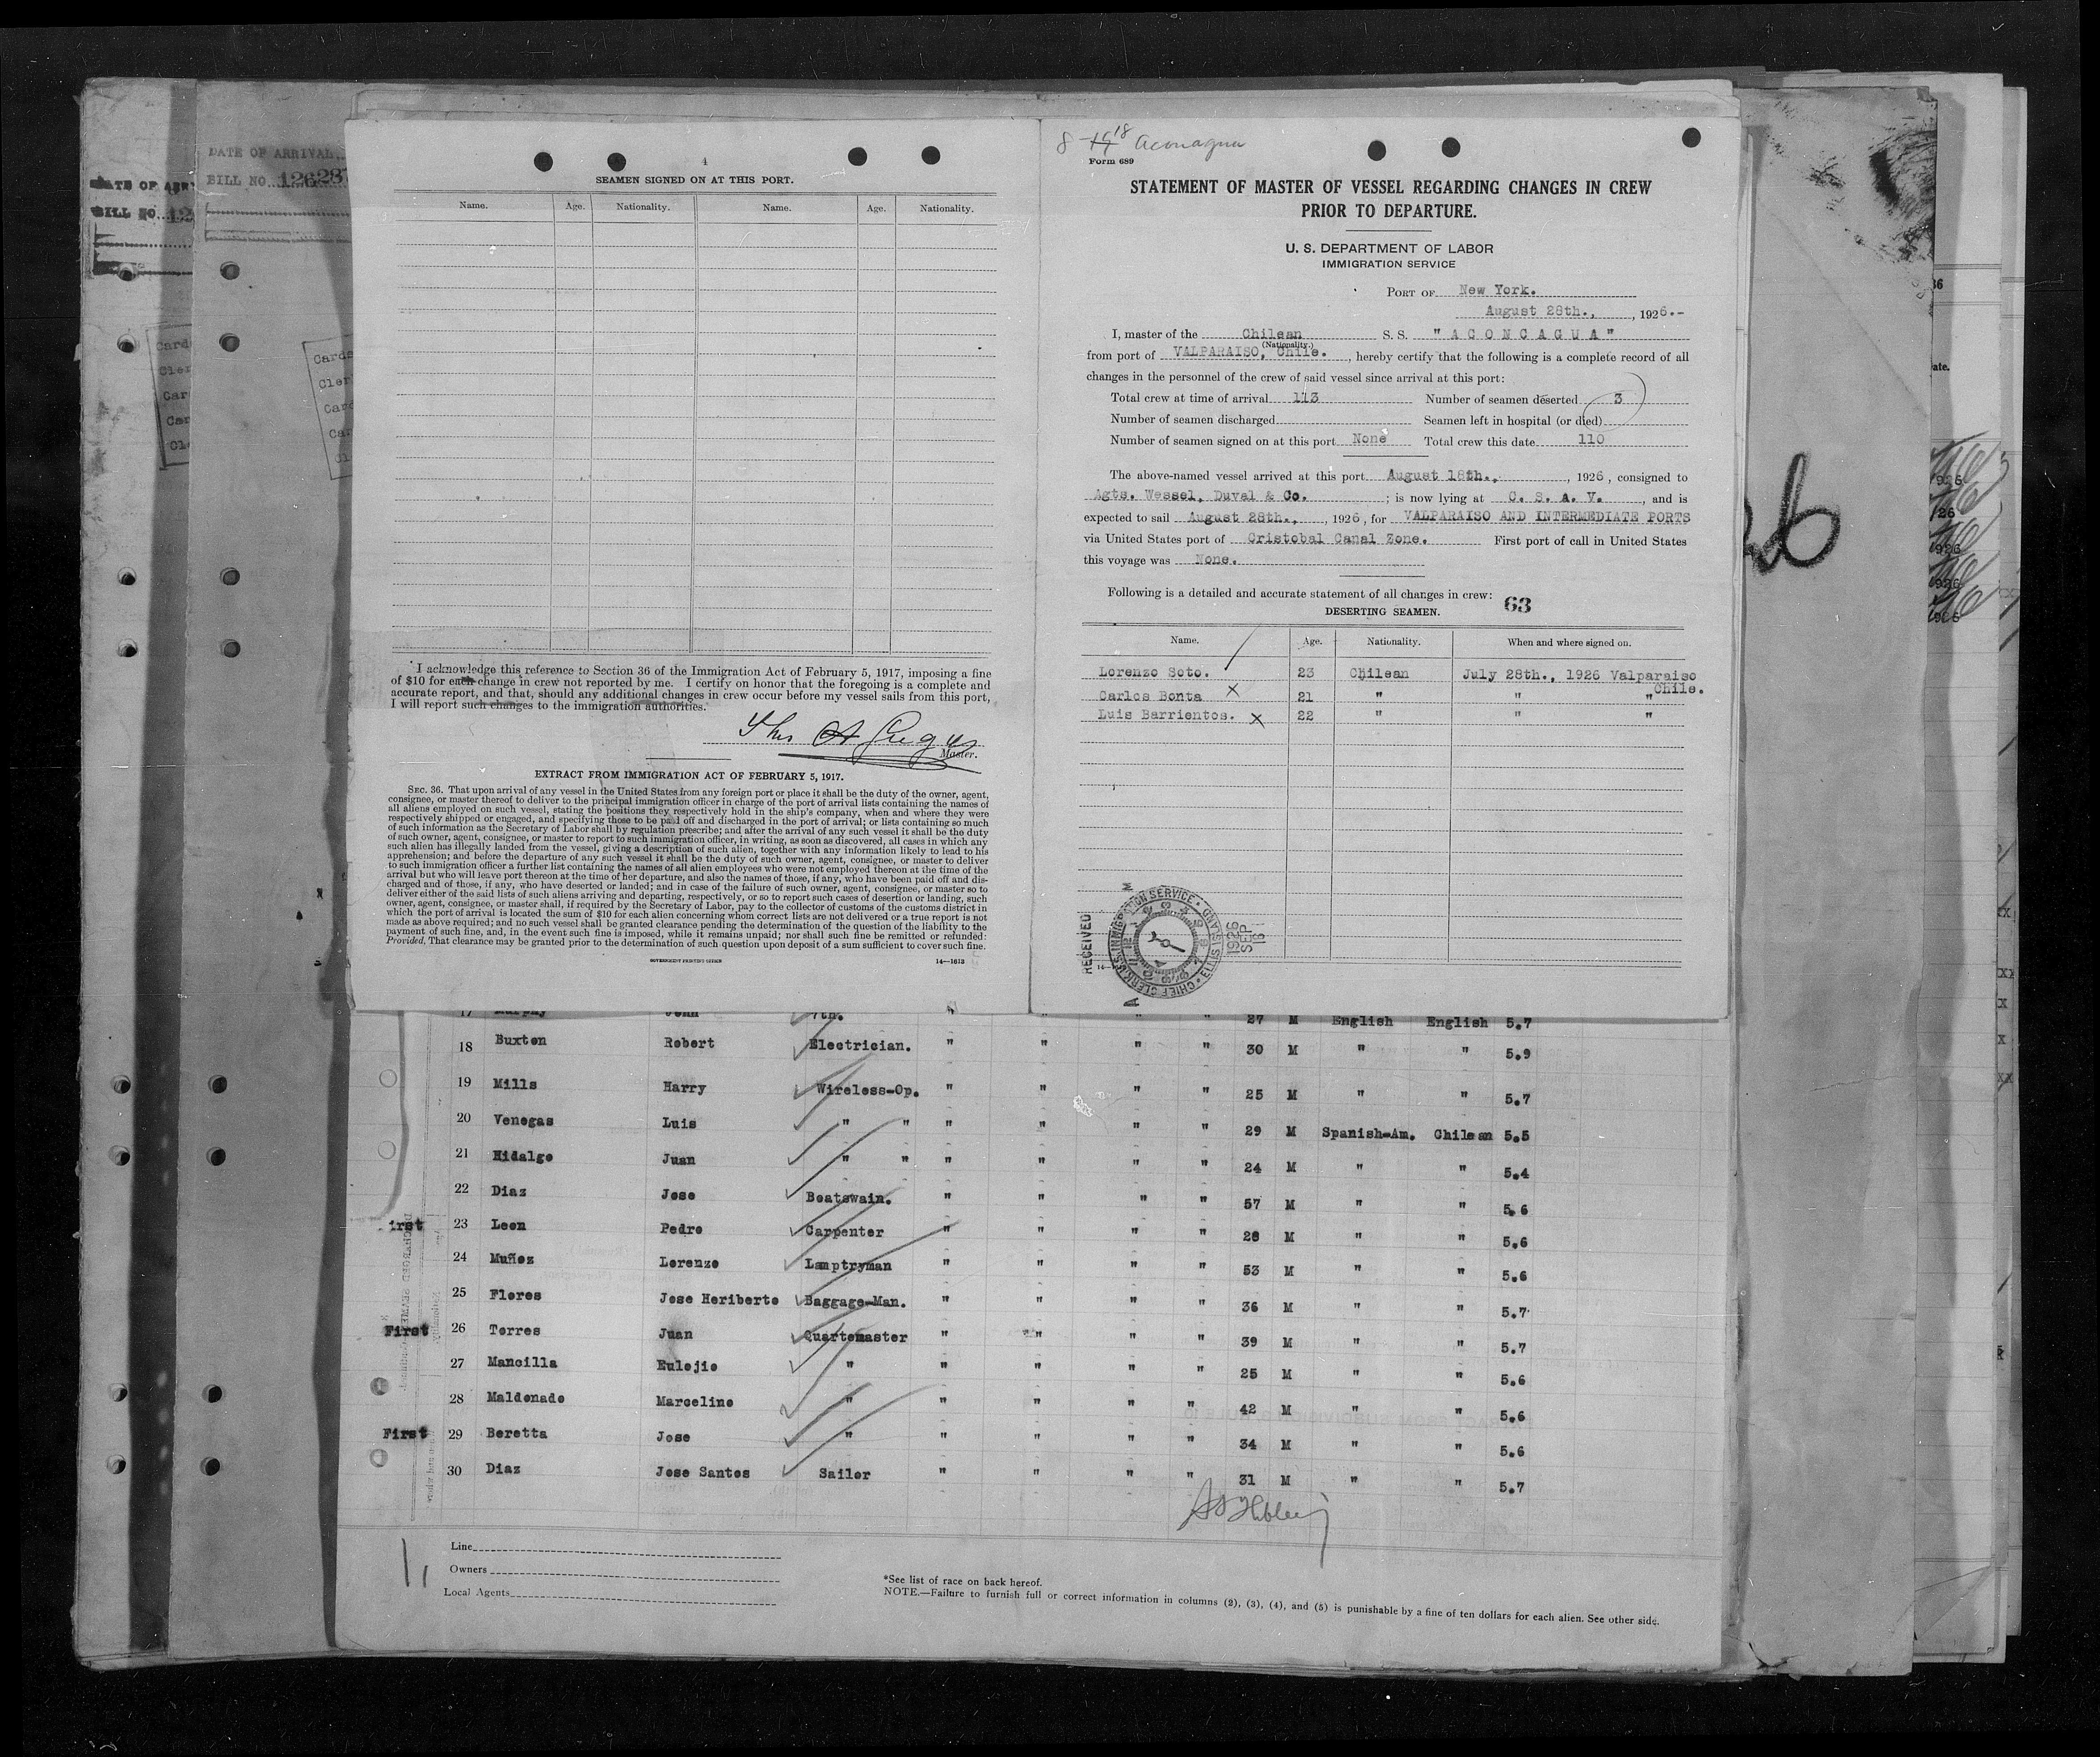 DATE OF ARRIVAL
BILL NO. 12628
DATE OF ARR
BILL NO. 12
4
SEAMEN SIGNED ON AT THIS PORT.
Name. Age. Nationality. Name. Age. Nationality.
I acknowledge this reference to Section 36 of the Immigration Act of February 5, 1917, imposing a fine
of $10 for each change in crew not reported by me. I certify on honor that the foregoing is a complete and
accurate report, and that, should any additional changes in crew occur before my vessel sails from this port,
I will report such changes to the immigration authorities.
Master.
EXTRACT FROM IMMIGRATION ACT OF FEBRUARY 5, 1917.
SEC. 36. That upon arrival of any vessel in the United States from any foreign port or place it shall be the duty of the owner, agent,
consignee, or master thereof to deliver to the principal immigration officer in charge of the port of arrival lists containing the names of
all aliens employed on such vessel, stating the positions they respectively hold in the ship's company, when and where they were
respectively shipped or engaged, and specifying those to be paid off and discharged in the port of arrival; or lists containing so much
of such information as the Secretary of Labor shall by regulation prescribe; and after the arrival of any such vessel it shall be the duty
of such owner, agent, consignee, or master to report to such immigration officer, in writing, as soon as discovered, all cases in which any
such alien has illegally landed from the vessel, giving a description of such alien, together with any information likely to lead to his
apprehension; and before the departure of any such vessel it shall be the duty of such owner, agent, consignee, or master to deliver
to such immigration officer a further list containing the names of all alien employees who were not employed thereon at the time of the
arrival but who will leave port thereon at the time of her departure, and also the names of those, if any, who have been paid off and dis-
charged and of those, if any, who have deserted or landed; and in case of the failure of such owner, agent, consignee, or master so to
deliver either of the said lists of such aliens arriving and departing, respectively, or so to report such cases of desertion or landing, such
owner, agent, consignee, or master shall, if required by the Secretary of Labor, pay to the collector of customs of the customs district in
which the port of arrival is located the sum of $10 for each alien concerning whom correct lists are not delivered or a true report is not
made as above required; and no such vessel shall be granted clearance pending the determination of the question of the liability to the
payment of such fine, and, in the event such fine is imposed, while it remains unpaid; nor shall such fine be remitted or refunded:
Provided, That clearance may be granted prior to the determination of such question upon deposit of a sum sufficient to cover such fine.
GOVERNMENT PRINTING OFFICE 14—1613
8 18 Aconagua
Form 689
STATEMENT OF MASTER OF VESSEL REGARDING CHANGES IN CREW
PRIOR TO DEPARTURE.
U. S. DEPARTMENT OF LABOR
IMMIGRATION SERVICE
PORT OF New York.
August 28th., , 1926.-
I, master of the Chilean S. S. "ACONCAGUA"
(Nationality.)
from port of VALPARAISO, Chile. , hereby certify that the following is a complete record of all
changes in the personnel of the crew of said vessel since arrival at this port:
Total crew at time of arrival 113 Number of seamen deserted 3
Number of seamen discharged Seamen left in hospital (or died)
Number of seamen signed on at this port None Total crew this date 110
The above-named vessel arrived at this port August 18th., , 1926, consigned to
Agts. Wessel, Duval & Co. ; is now lying at C. S. A. V. , and is
expected to sail August 28th., , 1926, for VALPARAISO AND INTERMEDIATE PORTS
via United States port of Cristobal Canal Zone. First port of call in United States
this voyage was None.
Following is a detailed and accurate statement of all changes in crew:
DESERTING SEAMEN. 63
Name. Age. Nationality. When and where signed on.
Lorenzo Soto. 23 Chilean July 28th., 1926 Valparaiso
Chile.
Carlos Bonta X 21 " " "
Luis Barrientos. X 22 " " "
RECEIVED
CHIEF CLERK U.S. IMMIGRATION SERVICE · ELLIS ISLAND
1926 SEP 16
17 Murphy John 7th. " " " " 27 M English English 5.7
18 Buxton Robert Electrician. " " " " 30 M " " 5.9
19 Mills Harry Wireless-Op. " " " " 25 M " " 5.7
20 Venegas Luis " " " " " " 29 M Spanish-Am. Chilean 5.5
21 Hidalgo Juan " " " " " " 24 M " " 5.4
22 Diaz Jose Boatswain. " " " " 57 M " " 5.6
irst 23 Leon Pedro Carpenter " " " " 28 M " " 5.6
24 Muñoz Lorenzo Lamptryman " " " " 53 M " " 5.6
25 Flores Jose Heriberto Baggage-Man. " " " " 36 M " " 5.7
First 26 Torres Juan Quartemaster " " " " 39 M " " 5.7
27 Mancilla Eulojio " " " " " 25 M " " 5.6
28 Maldonado Marcelino " " " " " 42 M " " 5.6
First 29 Beretta Jose " " " " " 34 M " " 5.6
30 Diaz Jose Santos Sailor " " " " 31 M " " 5.7
Line
Owners
Local Agents
*See list of race on back hereof.
NOTE.—Failure to furnish full or correct information in columns (2), (3), (4), and (5) is punishable by a fine of ten dollars for each alien. See other side.